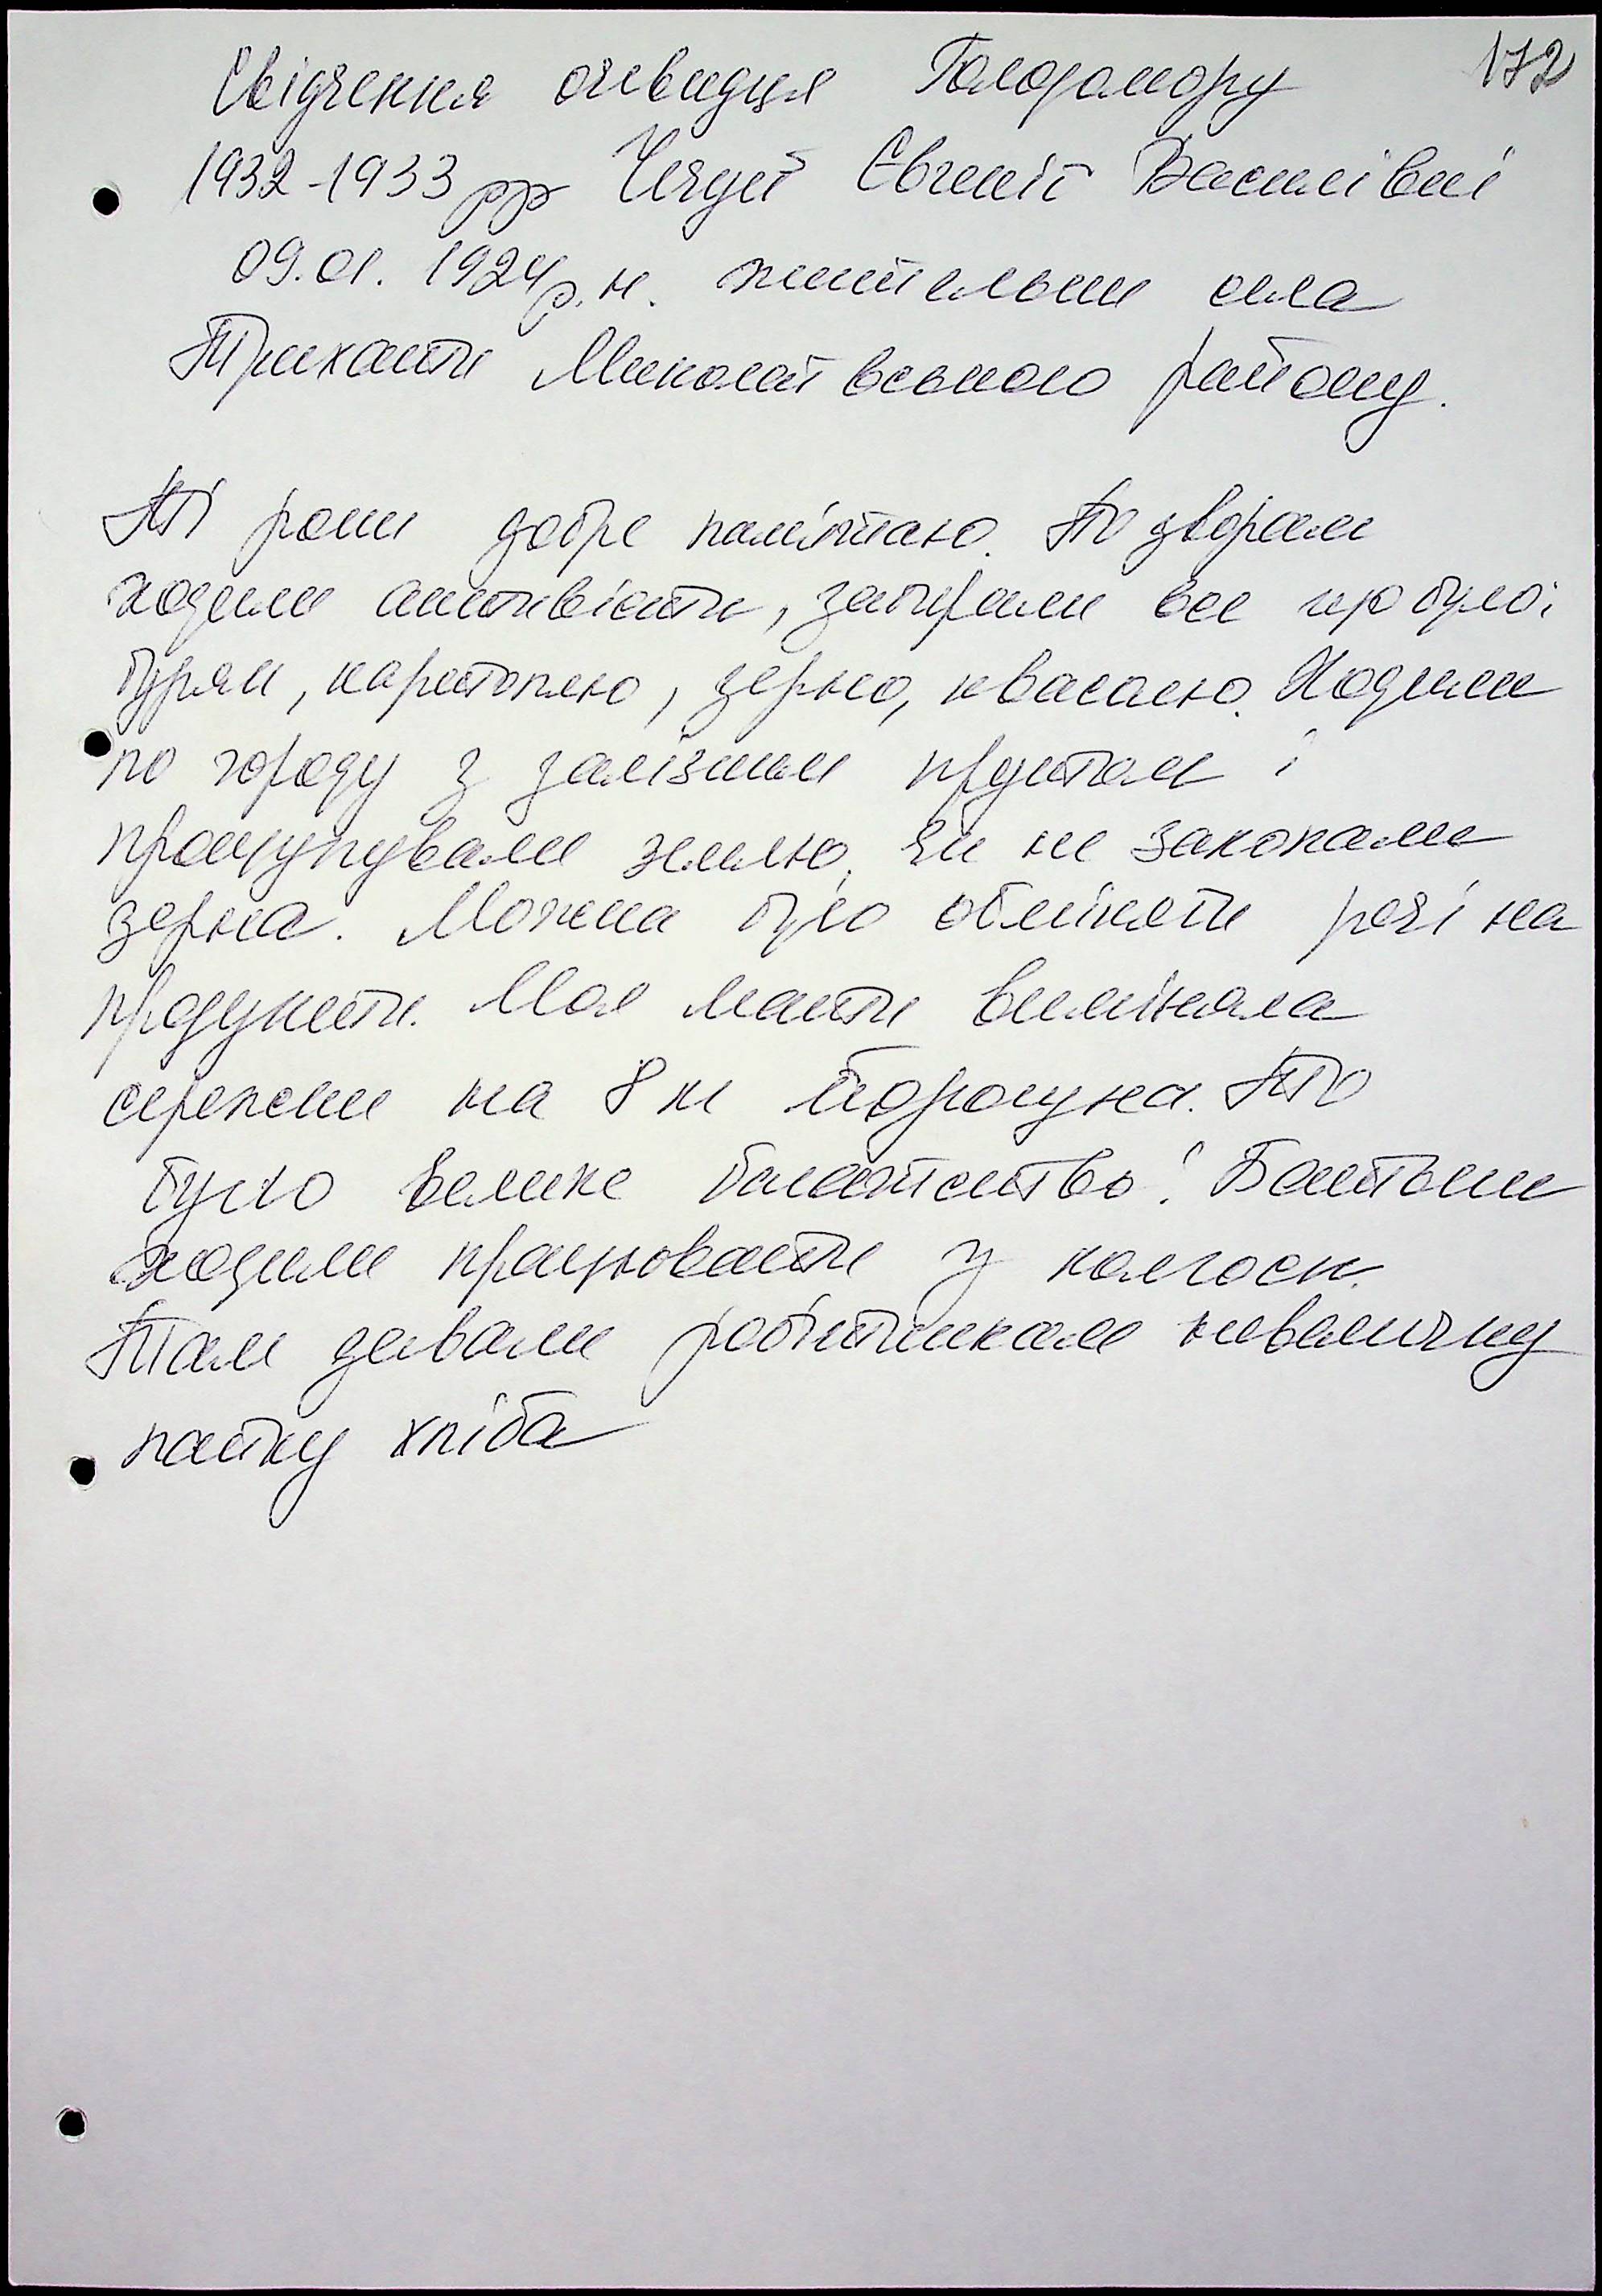 172
Свідчення очевидця Голодомору
1932-1933 рр Чечуй Євгенії Василівни
09.01.1924 р.н. жительки села
Трихати Миколаївського району.
Ті роки добре пам'ятаю. По дворам
ходили активісти, забирали все що було:
буряк, картоплю, зерно, квасолю. Ходили
по городу з залізним прутом і
прощупували землю. Чи не закопали
зерна. Можна було обміняти речі на
продукти. Моя мати виміняла
сережки на 8 кг борошна. То
було велике багатство! Батьки
ходили працювати у колгосп.
Там давали робітникам невеличку
пайку хліба